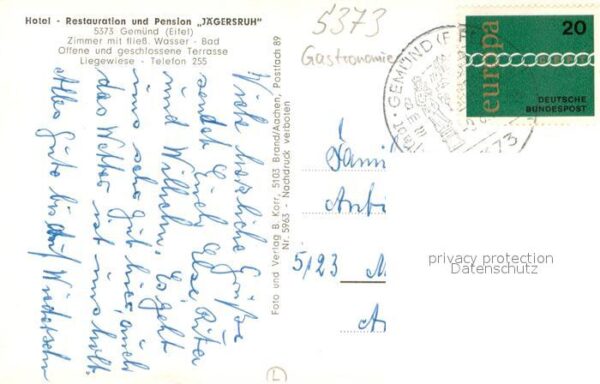 Hotel - Restauration und Pension „JÄGERSRUH"
5373 Gemünd (Eifel)
Zimmer mit fließ. Wasser - Bad
Offene und geschlossene Terrasse
Liegewiese - Telefon 255
5373
Gastronomie
Viele herzliche Grüße
sendet Euch Else Rita
und Wilhelm. Es geht
uns sehr gut hier, auch
das Wetter ist uns holt.
Alles Gute bis auf Wiedersehn
Foto und Verlag B. Korr, 5103 Brand/Aachen, Postfach 89
Nr. 5963 - Nachdruck verboten
GEMÜND (EIFEL
5373
europa
20
DEUTSCHE
BUNDESPOST
Fami
5123 M
privacy protection
Datenschutz
L